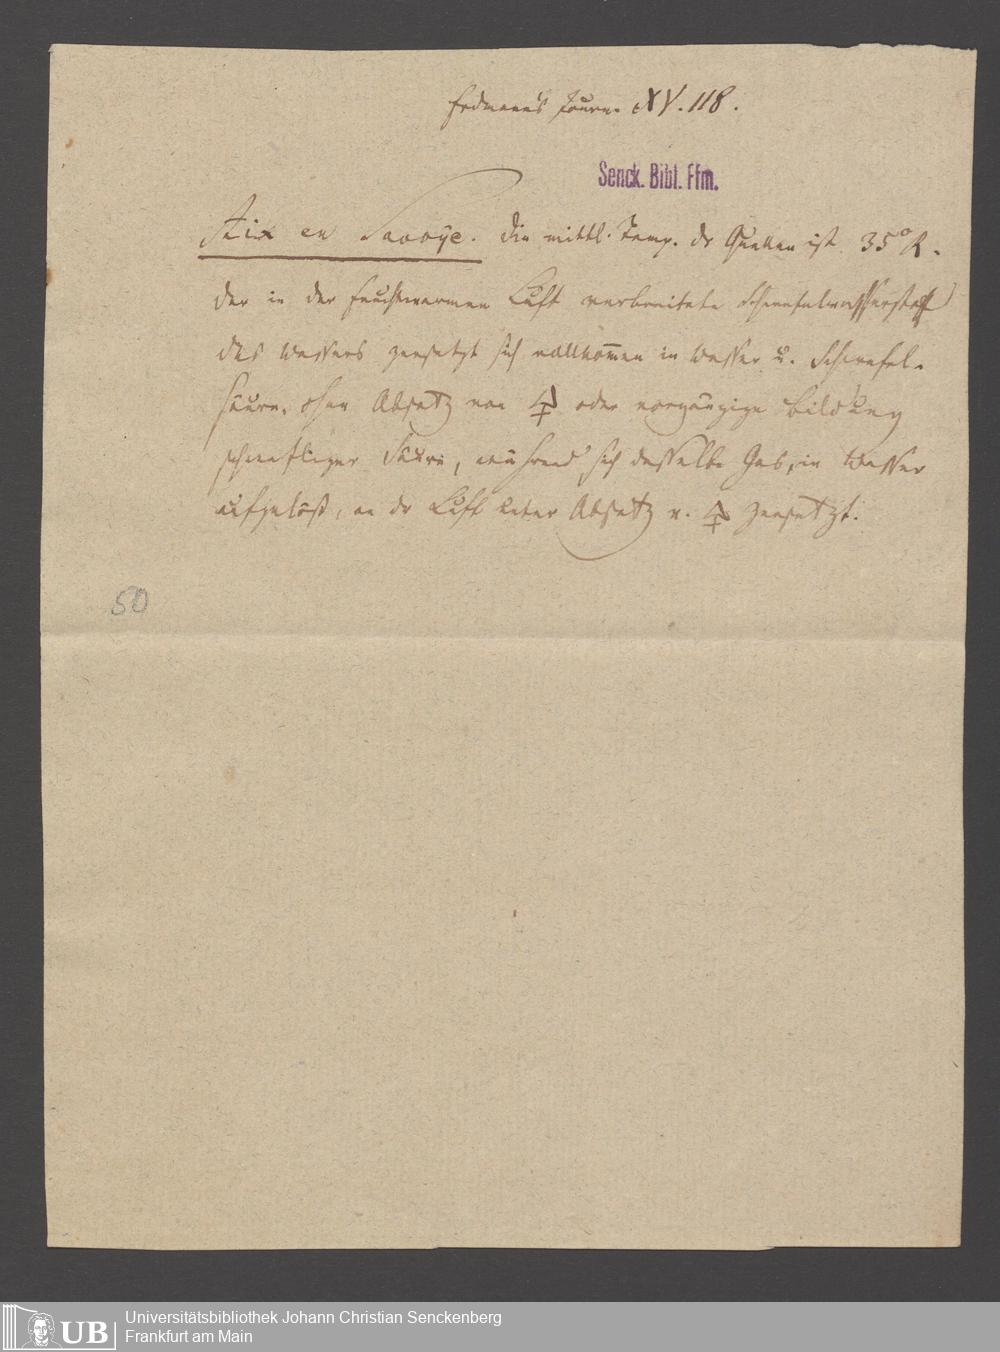 Erdmann's Journ. XV. 118.
Senck. Bibl. Ffm.
Aix en Savoye. Die mittl. Temp. dr Quellen ist 35° R.
Der in der feuchtwarmen Luft verbreitete Schwefelwasserstoff
des Wassers zersetzt sich vollkom̄en in Wasser u. Schwefel-
säure, ohne Absatz von 🜍 oder vorgängige Bildung
schwefliger Säure, während sich dasselbe Gas, in Wasser
aufgelöst, an dr Luft unter Absatz v. 🜍 zersetzt.
50
UB
Universitätsbibliothek Johann Christian Senckenberg
Frankfurt am Main